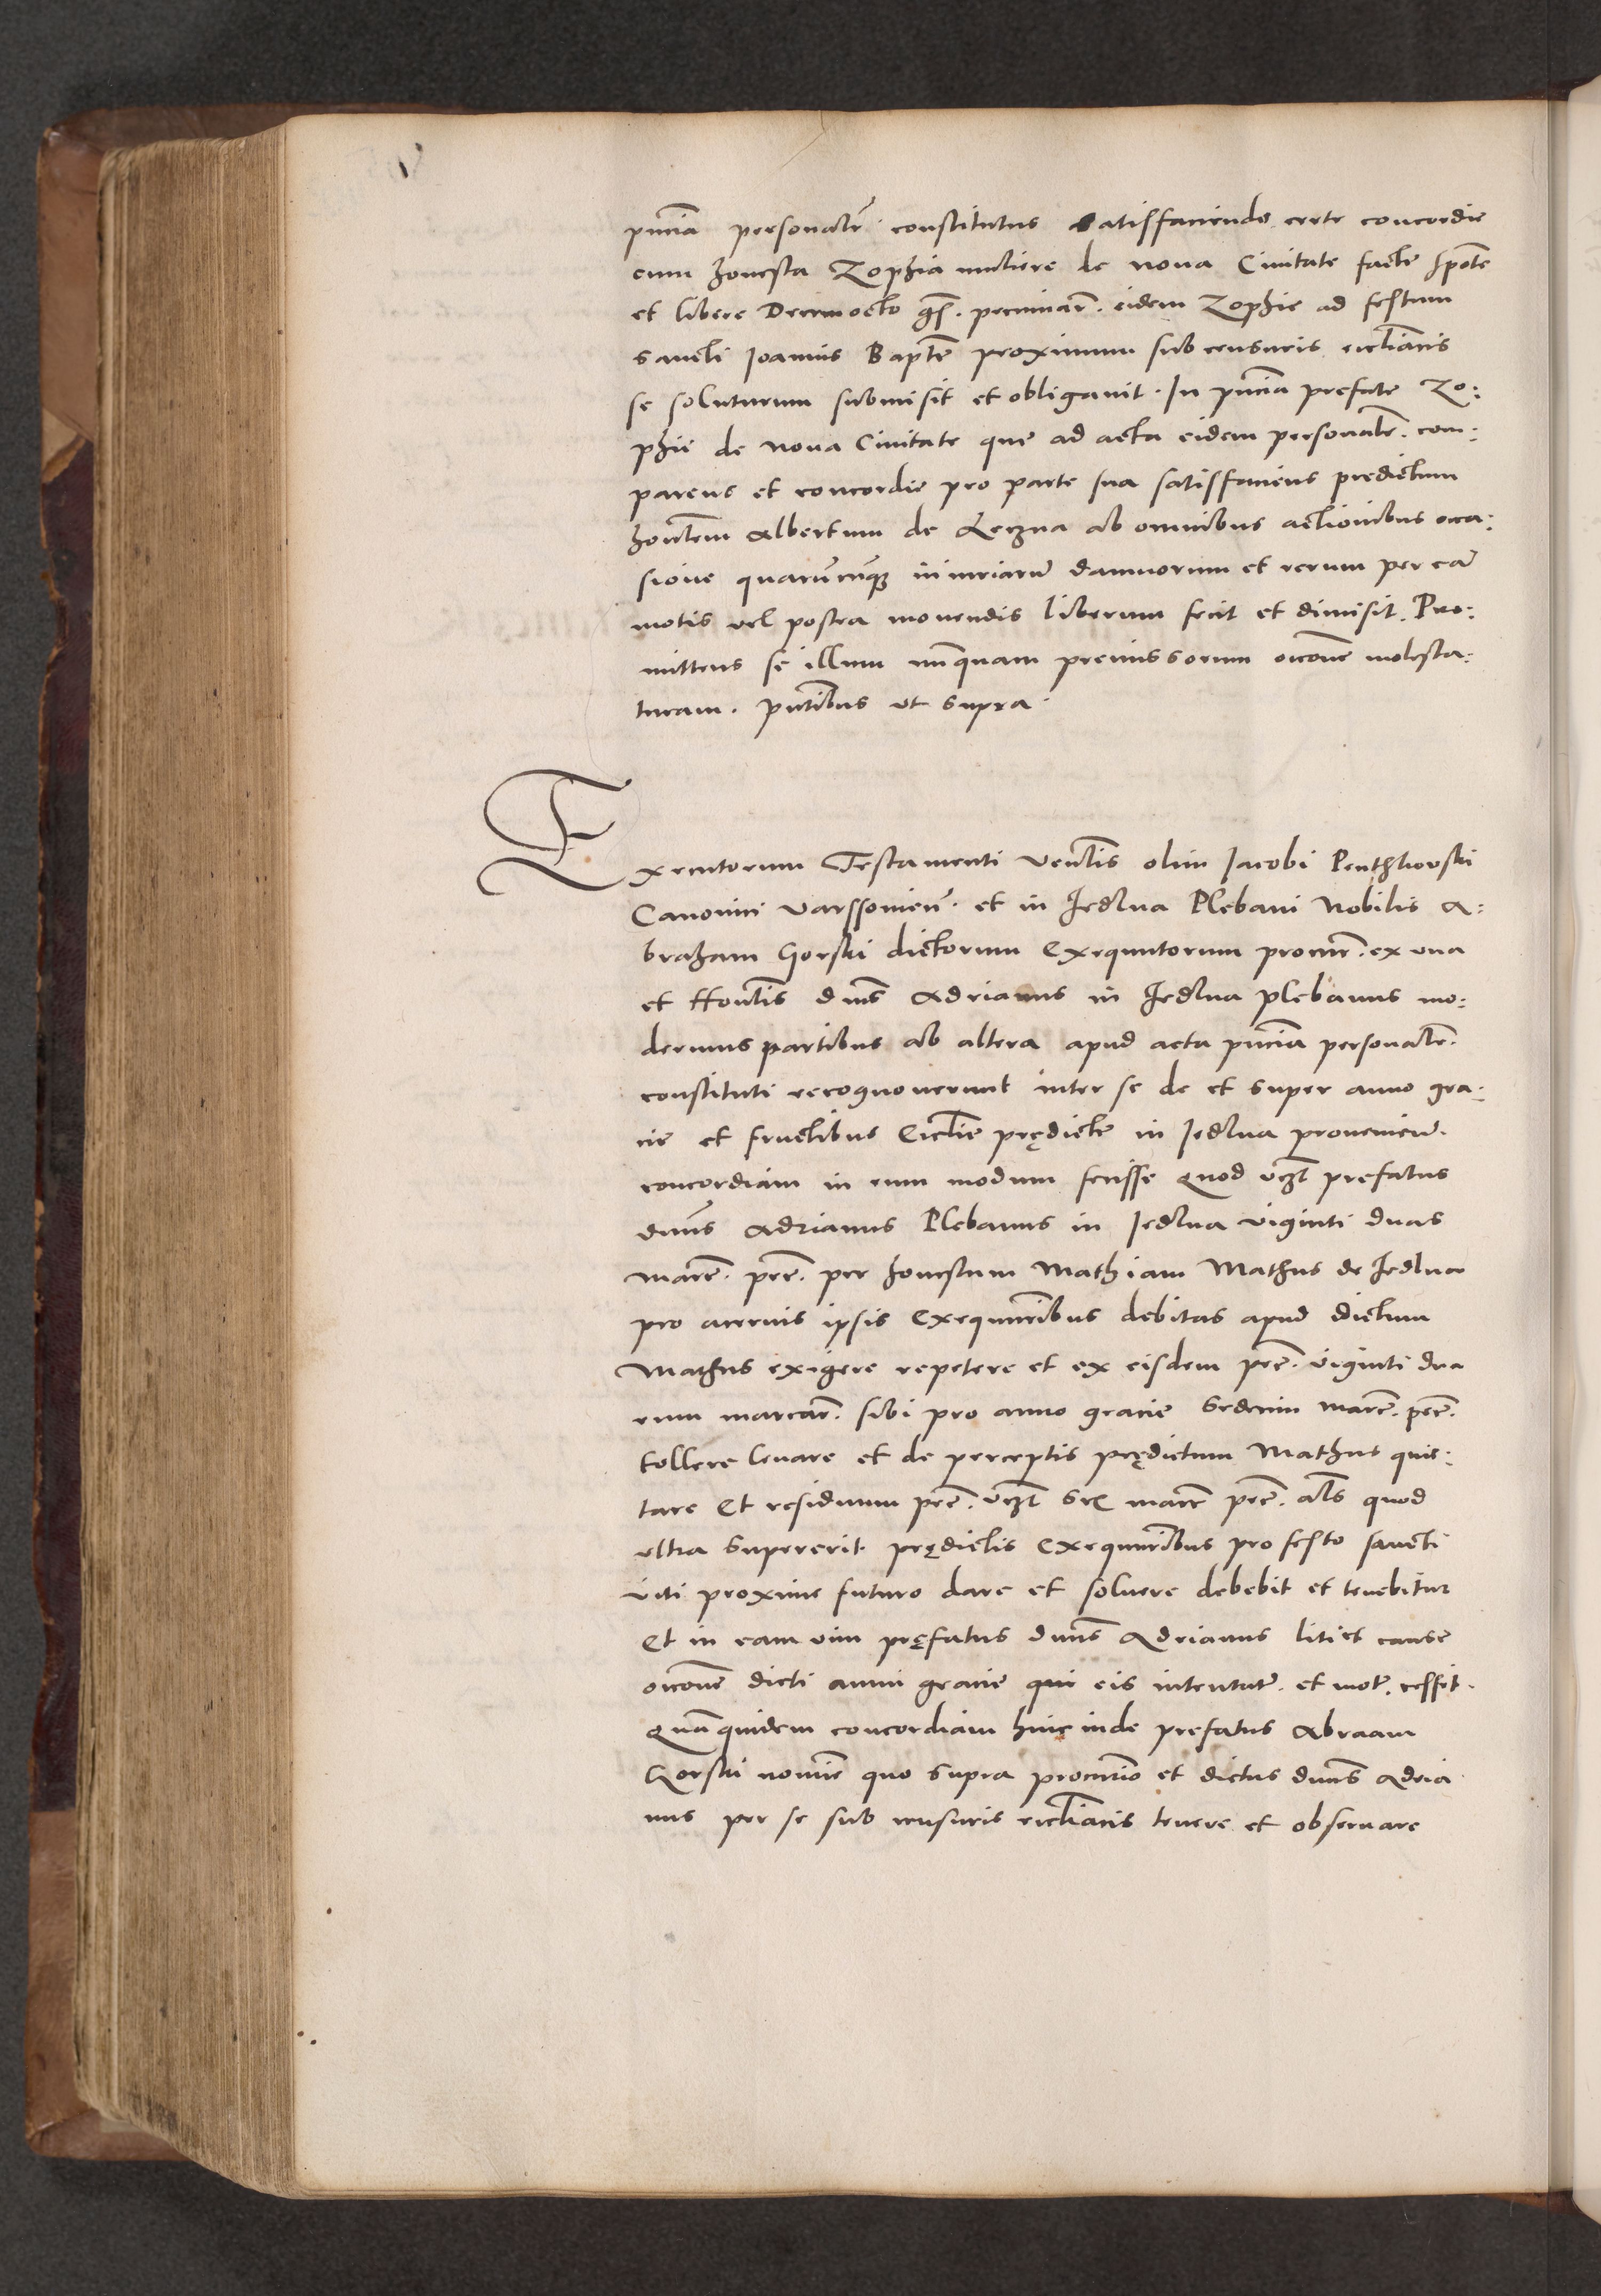 pñcia personalr̃ constitutus satisfaciendo certe concordie
cum honesta Zophia muliere de noua Ciuitate facte spõte
et libere Decemocto gs̃. pecuniar̃. eidem Zophie ad festum
sancti Ioannis Baptẽ proximum sub censuris ecclĩacis
se soluturum submisit et obligauit. In pñcia prefate Zo:
phie de noua Ciuitate que ad acta eidem personalr̃. com:
parens et concordie pro parte sua satisfaciens predictum
honẽtem Albertum de Leczna ab omnibus actionibus occa:
sione quarũcunq̃ iniuriarũ damnorum et rerum per eã
motis vel postea mouendis liberum fecit et dimisit. Pro:
mittens se illum nũquam premissorum occõne molesta:
turam. pñtibus vt supra.
Executorum Testamenti Venẽlis olim Iacobi Penthkovski
Canonici Varssouień. et in Iedlna Plebani Nobilis A:
braham Gorski dictorum Exequutorum procur̃. ex vna
et Honẽlis dñus Adrianus in Iedlna plebanus mo:
dernus partibus ab altera apud acta pñcia personalr̃.
constituti recognouerunt inter se de et super anno gra:
cie et fructibus Ecclie prędicte in Iedlna prouenieñ.
concordiam in eum modum fecisse Quod vczt̃ prefatus
dñus Adrianus Plebanus in Iedlna viginti duas
marc̃. pec̃. per honestum Mathiam Mathus de Iedlna
pro aceruis ipsis Exequutoribus debitas apud dictum
Mathus exigere repetere et ex eisdem pec̃. viginti dua
rum marcar̃. sibi pro anno gracie Sedecim marc̃. pec̃.
tollere leuare et de perceptis prędictum Mathus quie:
tare Et residuum pec̃. vczt̃ sex marc̃ pec̃. als̃ quod
vltra supererit prędictis Exequutoribus pro festo sancti
viti proxime futuro dare et soluere debebit et tenebitur
Et in eam vim pręfatus dñus Adrianus liti et cause
occõne dicti anni gracie qui eis intentatẽ. et motẽ. cessit.
Quã quidem concordiam hinc inde prefatus Abraam
Gorski nomine quo supra procurio et dictus dñus Adria
nus per se sub censuris ecclĩacis tenere et obseruare